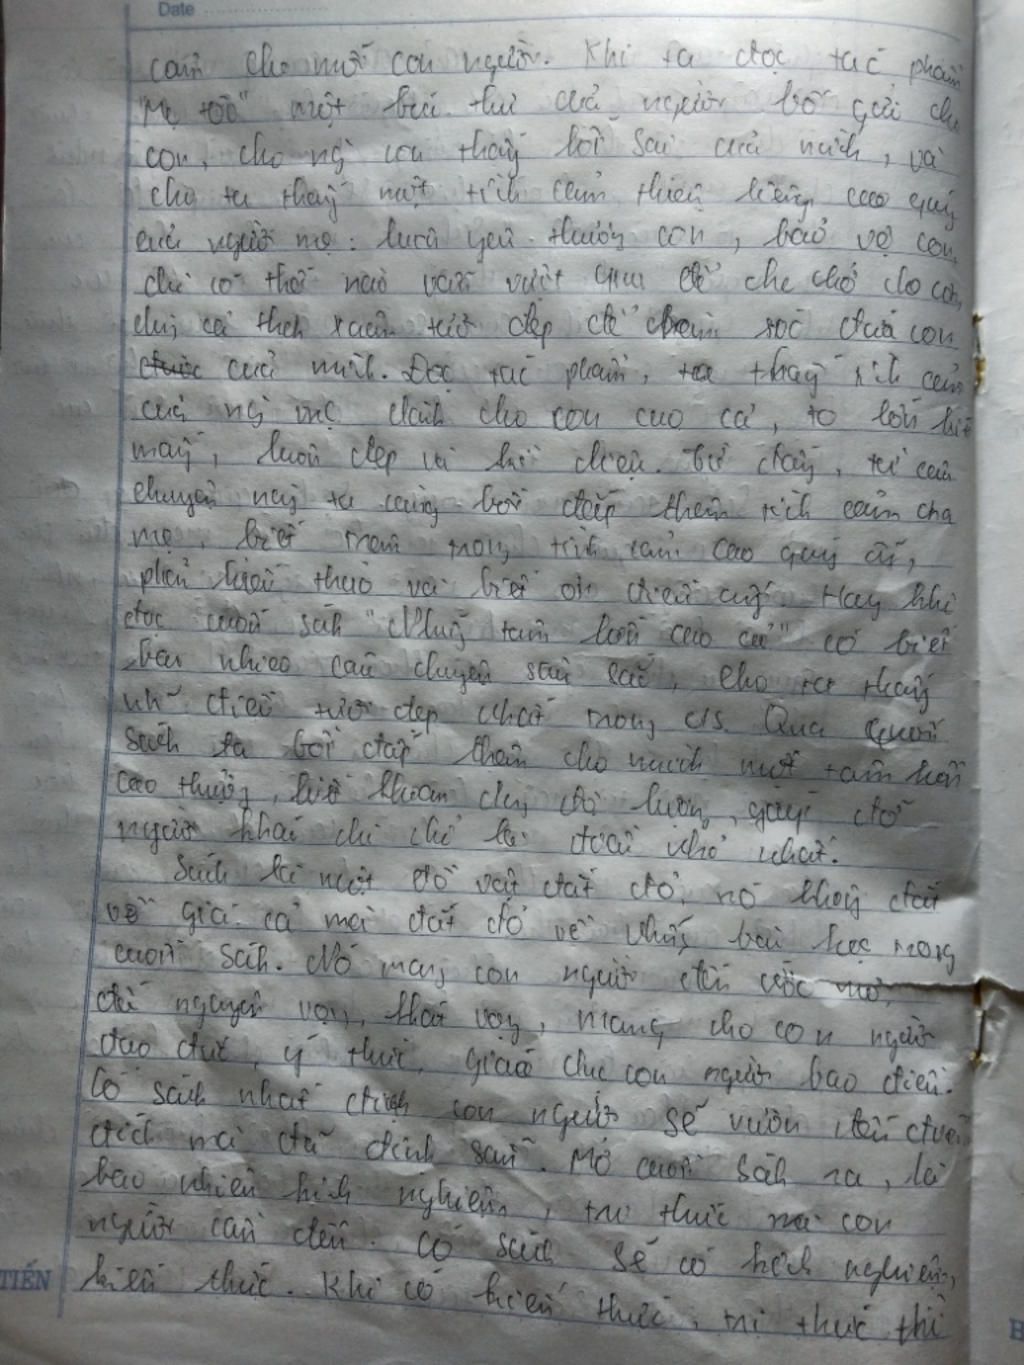 Date
cảm cho mỗi con người. Khi ta đọc tác phẩm
"Mẹ tôi" một bức thư của người bố gửi cho
con, cho ng` con thấy lỗi sai của mình, và
cho ta thấy một tình cảm thiêng liêng cao quý
của người mẹ: luôn yêu thương con, bảo vệ con,
dù có thế nào vẫn vượt qua để che chở cho con,
dù cả thanh xuân tươi đẹp để chăm sóc đứa con
được của mình. Đọc tác phẩm, ta thấy tình cảm
của ng` mẹ dành cho con cao cả, to lớn biết
mấy, luôn đẹp và bất diệt. Từ đây, từ câu
chuyện này ta cũng bồi đắp thêm tình cảm cha
mẹ, biết trân trọng tình cảm cao quý ấy,
phải hiếu thảo và biết ơn điều ấy. Hay khi
đọc cuốn sách "Những tấm lòng cao cả" có biết
bao nhiêu câu chuyện sâu sắc, cho ta thấy
những điều tươi đẹp nhất trong c/s. Qua quyển
sách ta bồi đắp thêm cho mình một tâm hồn
cao thượng, biết khoan dung độ lượng, giúp đỡ
người khác dù chỉ là điều nhỏ nhất.
Sách là một đồ vật đắt đỏ, nó không đắt
về giá cả mà đắt đỏ về những bài học trong
cuốn sách. Nó mang con người đến ước mơ,
đến nguyện vọng, khát vọng, mang cho con người
đạo đức, ý thức, giáo dục con người bao điều.
Có sách nhất định con người sẽ vươn đến được
đích mà đã định sẵn. Mở cuốn sách ra, là
bao nhiêu kinh nghiệm, tri thức mà con
người cần đến. Có sách sẽ có kinh nghiệm,
kiến thức. Khi có kiến thức, tri thức thì
TIẾN